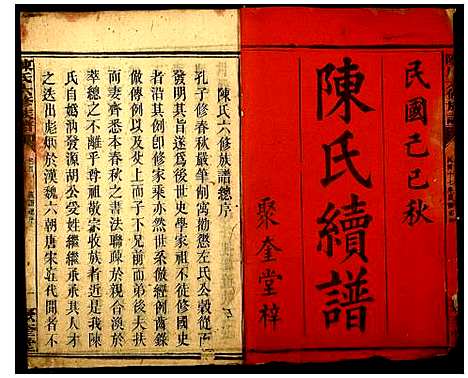 民國己巳秋
陳氏續譜
聚奎堂梓
陳氏六修族譜總序
孔子修春秋嚴筆削寓勸懲左氏公穀從而
發明其旨遂爲後世史學家祖不徒修國史
者沿其例卽修家乘亦然世系倣經例齒錄
倣傳例以及上而子下兄前而弟後夫扶
而妻齊悉本春秋之書法聯疎於親合渙於
萃總之不離乎尊祖敬宗收族者近是我陳
氏自嬀汭發源胡公受姓繼繼承承其人才
之迭出彪炳於漢魏六朝唐宋元代間者不